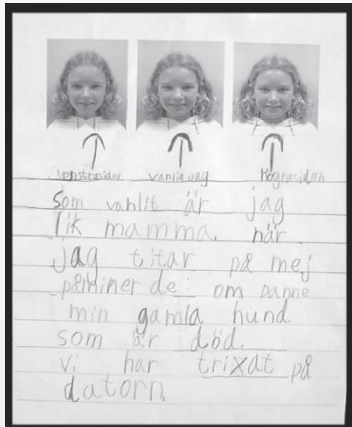 vänstrasidan vanliajag högrasidan
Som vahlit är jag
lik mamma. när
jag titar på mej
påminer de om panne
min gamla hund
som är död.
vi har trixat på
datorn.